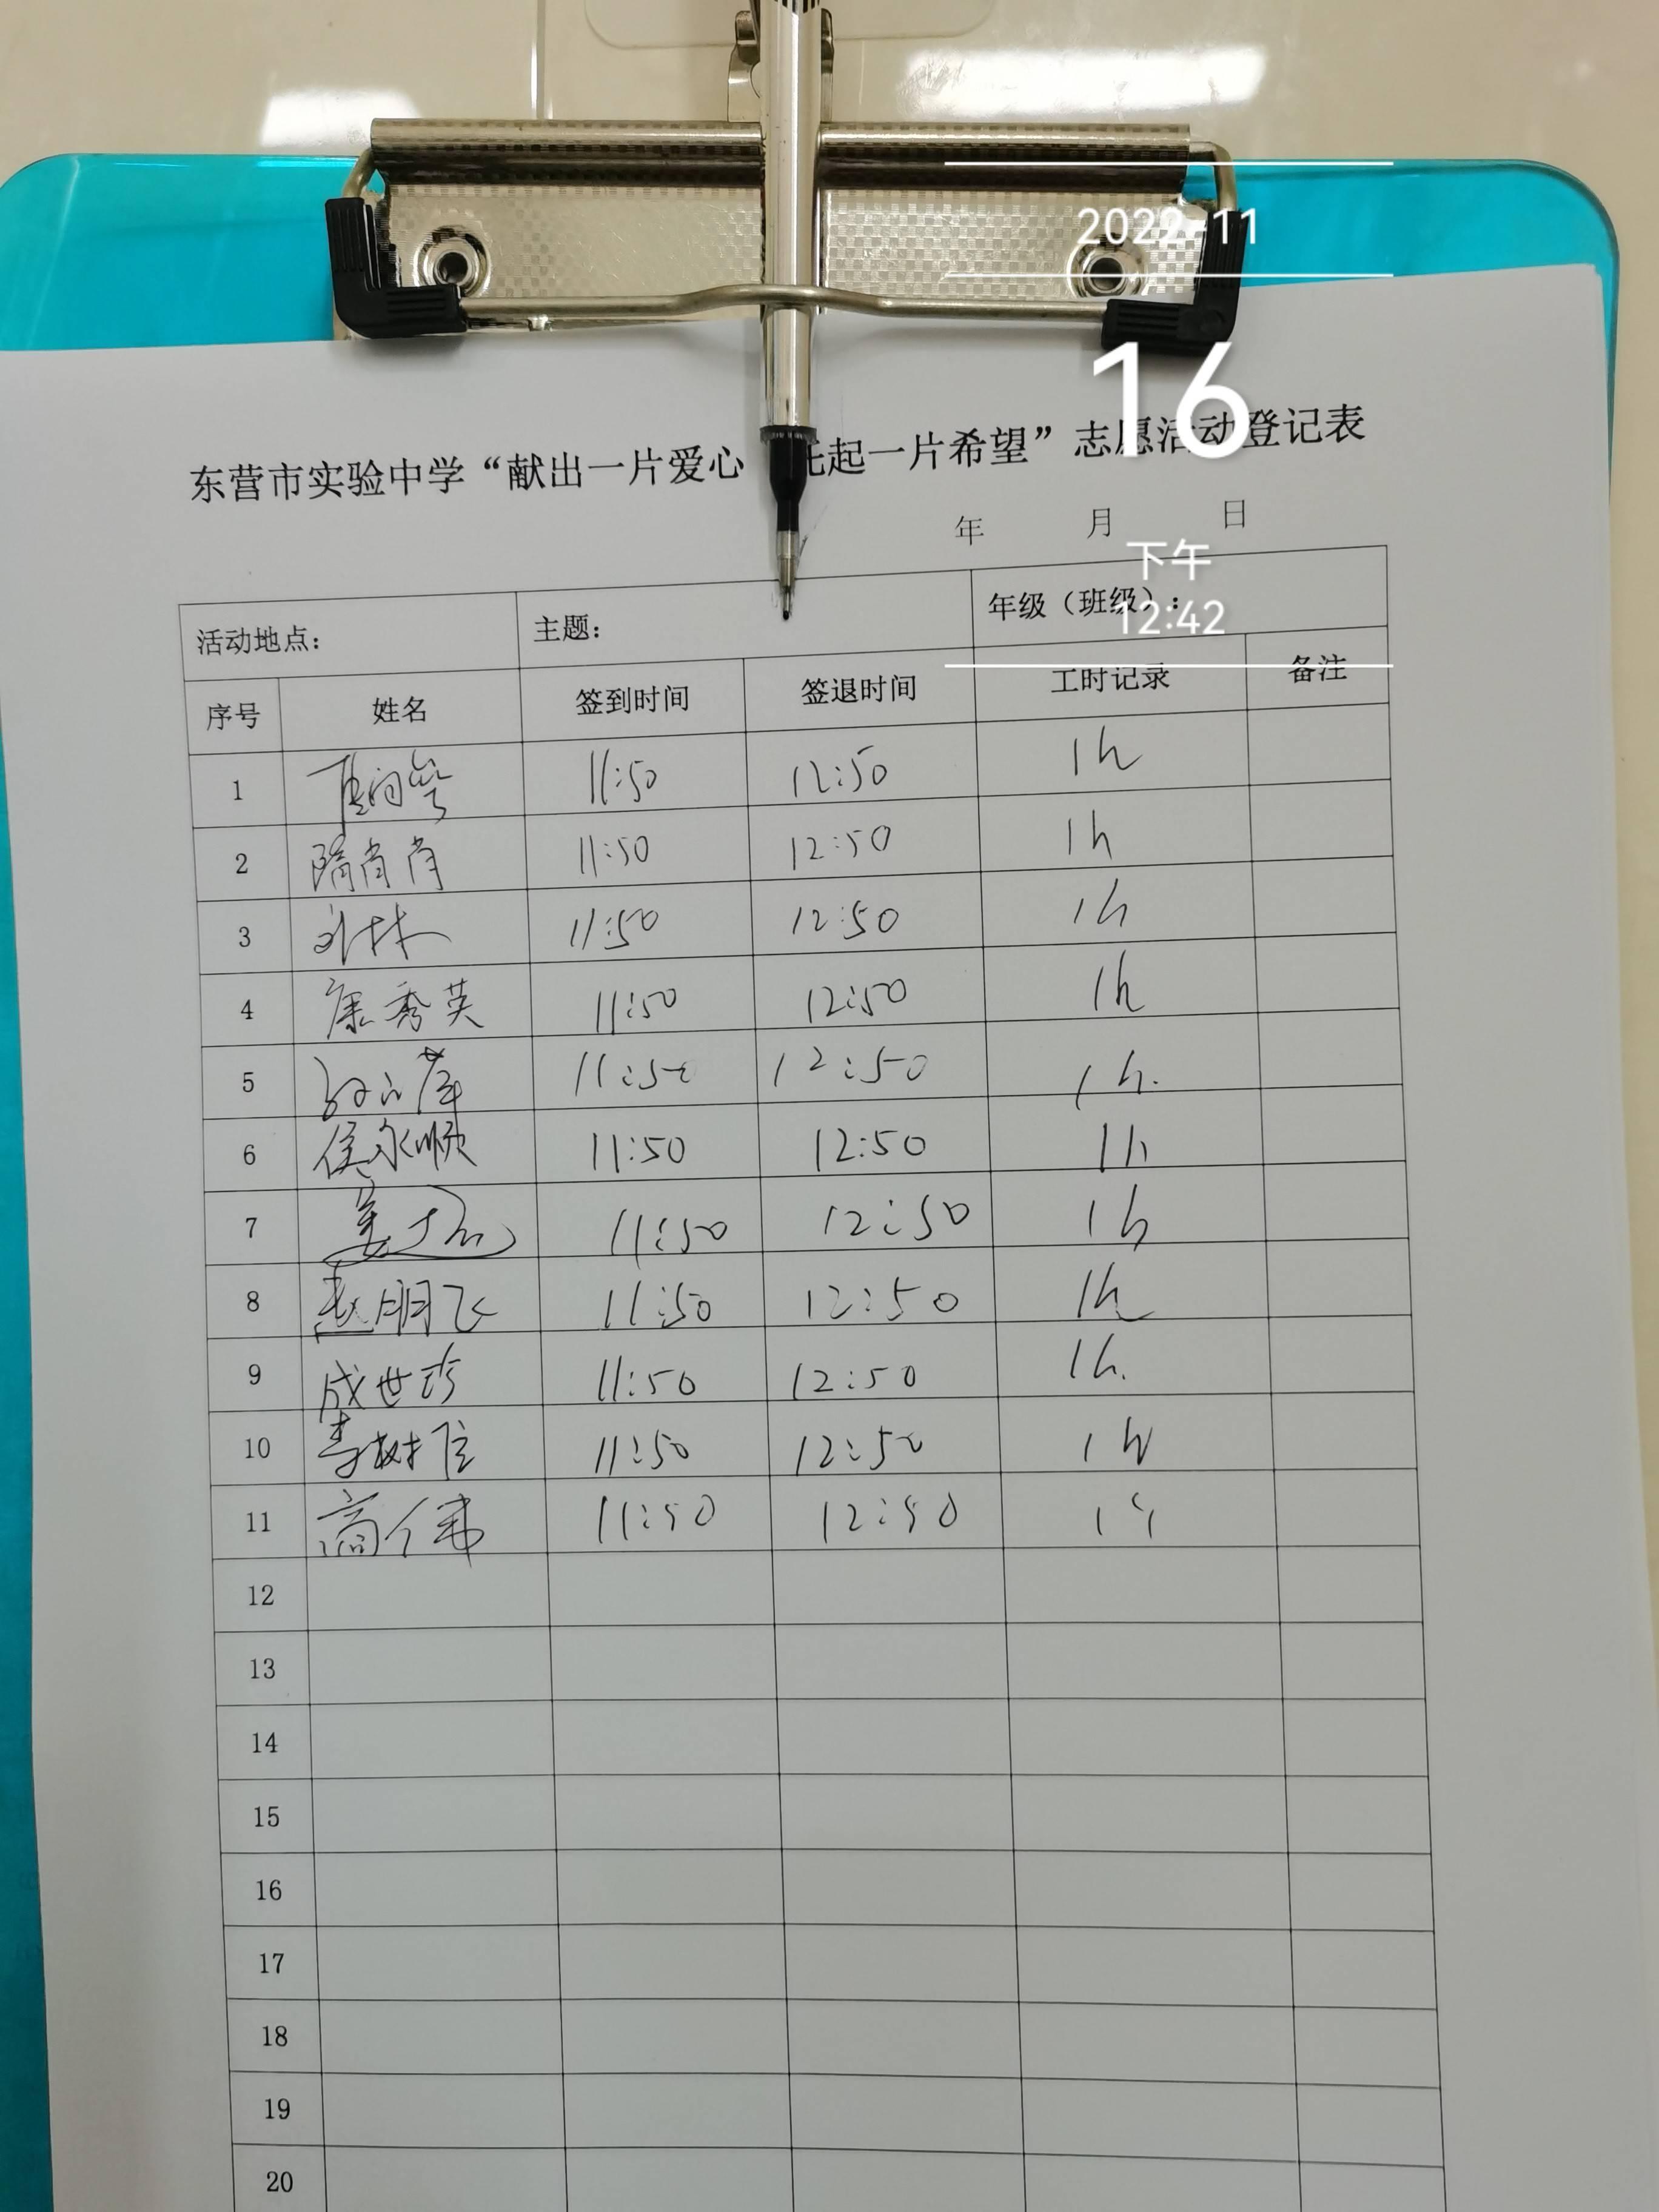 2022-11
16
下午
12:42
东营市实验中学“献出一片爱心 托起一片希望”志愿活动登记表
年 月 日
活动地点： 主题： 年级（班级）：
序号 姓名 签到时间 签退时间 工时记录 备注
1 11:50 12:50 1h
2 隋肖肖 11:50 12:50 1h
3 刘林 11:50 12:50 1h
4 康秀英 11:50 12:50 1h
5 11:50 12:50 1h.
6 侯永顺 11:50 12:50 1h
7 姜 11:50 12:50 1h
8 赵朋飞 11:50 12:50 1h
9 成世珍 11:50 12:50 1h.
10 李树 11:50 12:50 1h
11 高伟 11:50 12:50 1
12
13
14
15
16
17
18
19
20